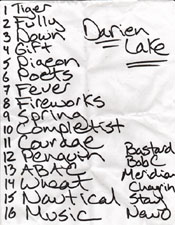 1 Tiger
2 Fully
3 Down
4 Gift
5 Pigeon
6 Poets
7 Fever
8 Fireworks
9 Spring
10 Completist
11 Courage
12 Penguin
13 ABAC
14 Wheat
15 Nautical
16 Music
Darien
Lake
Bastard
BobC
Meridian
Chagrin
Stay
NawO